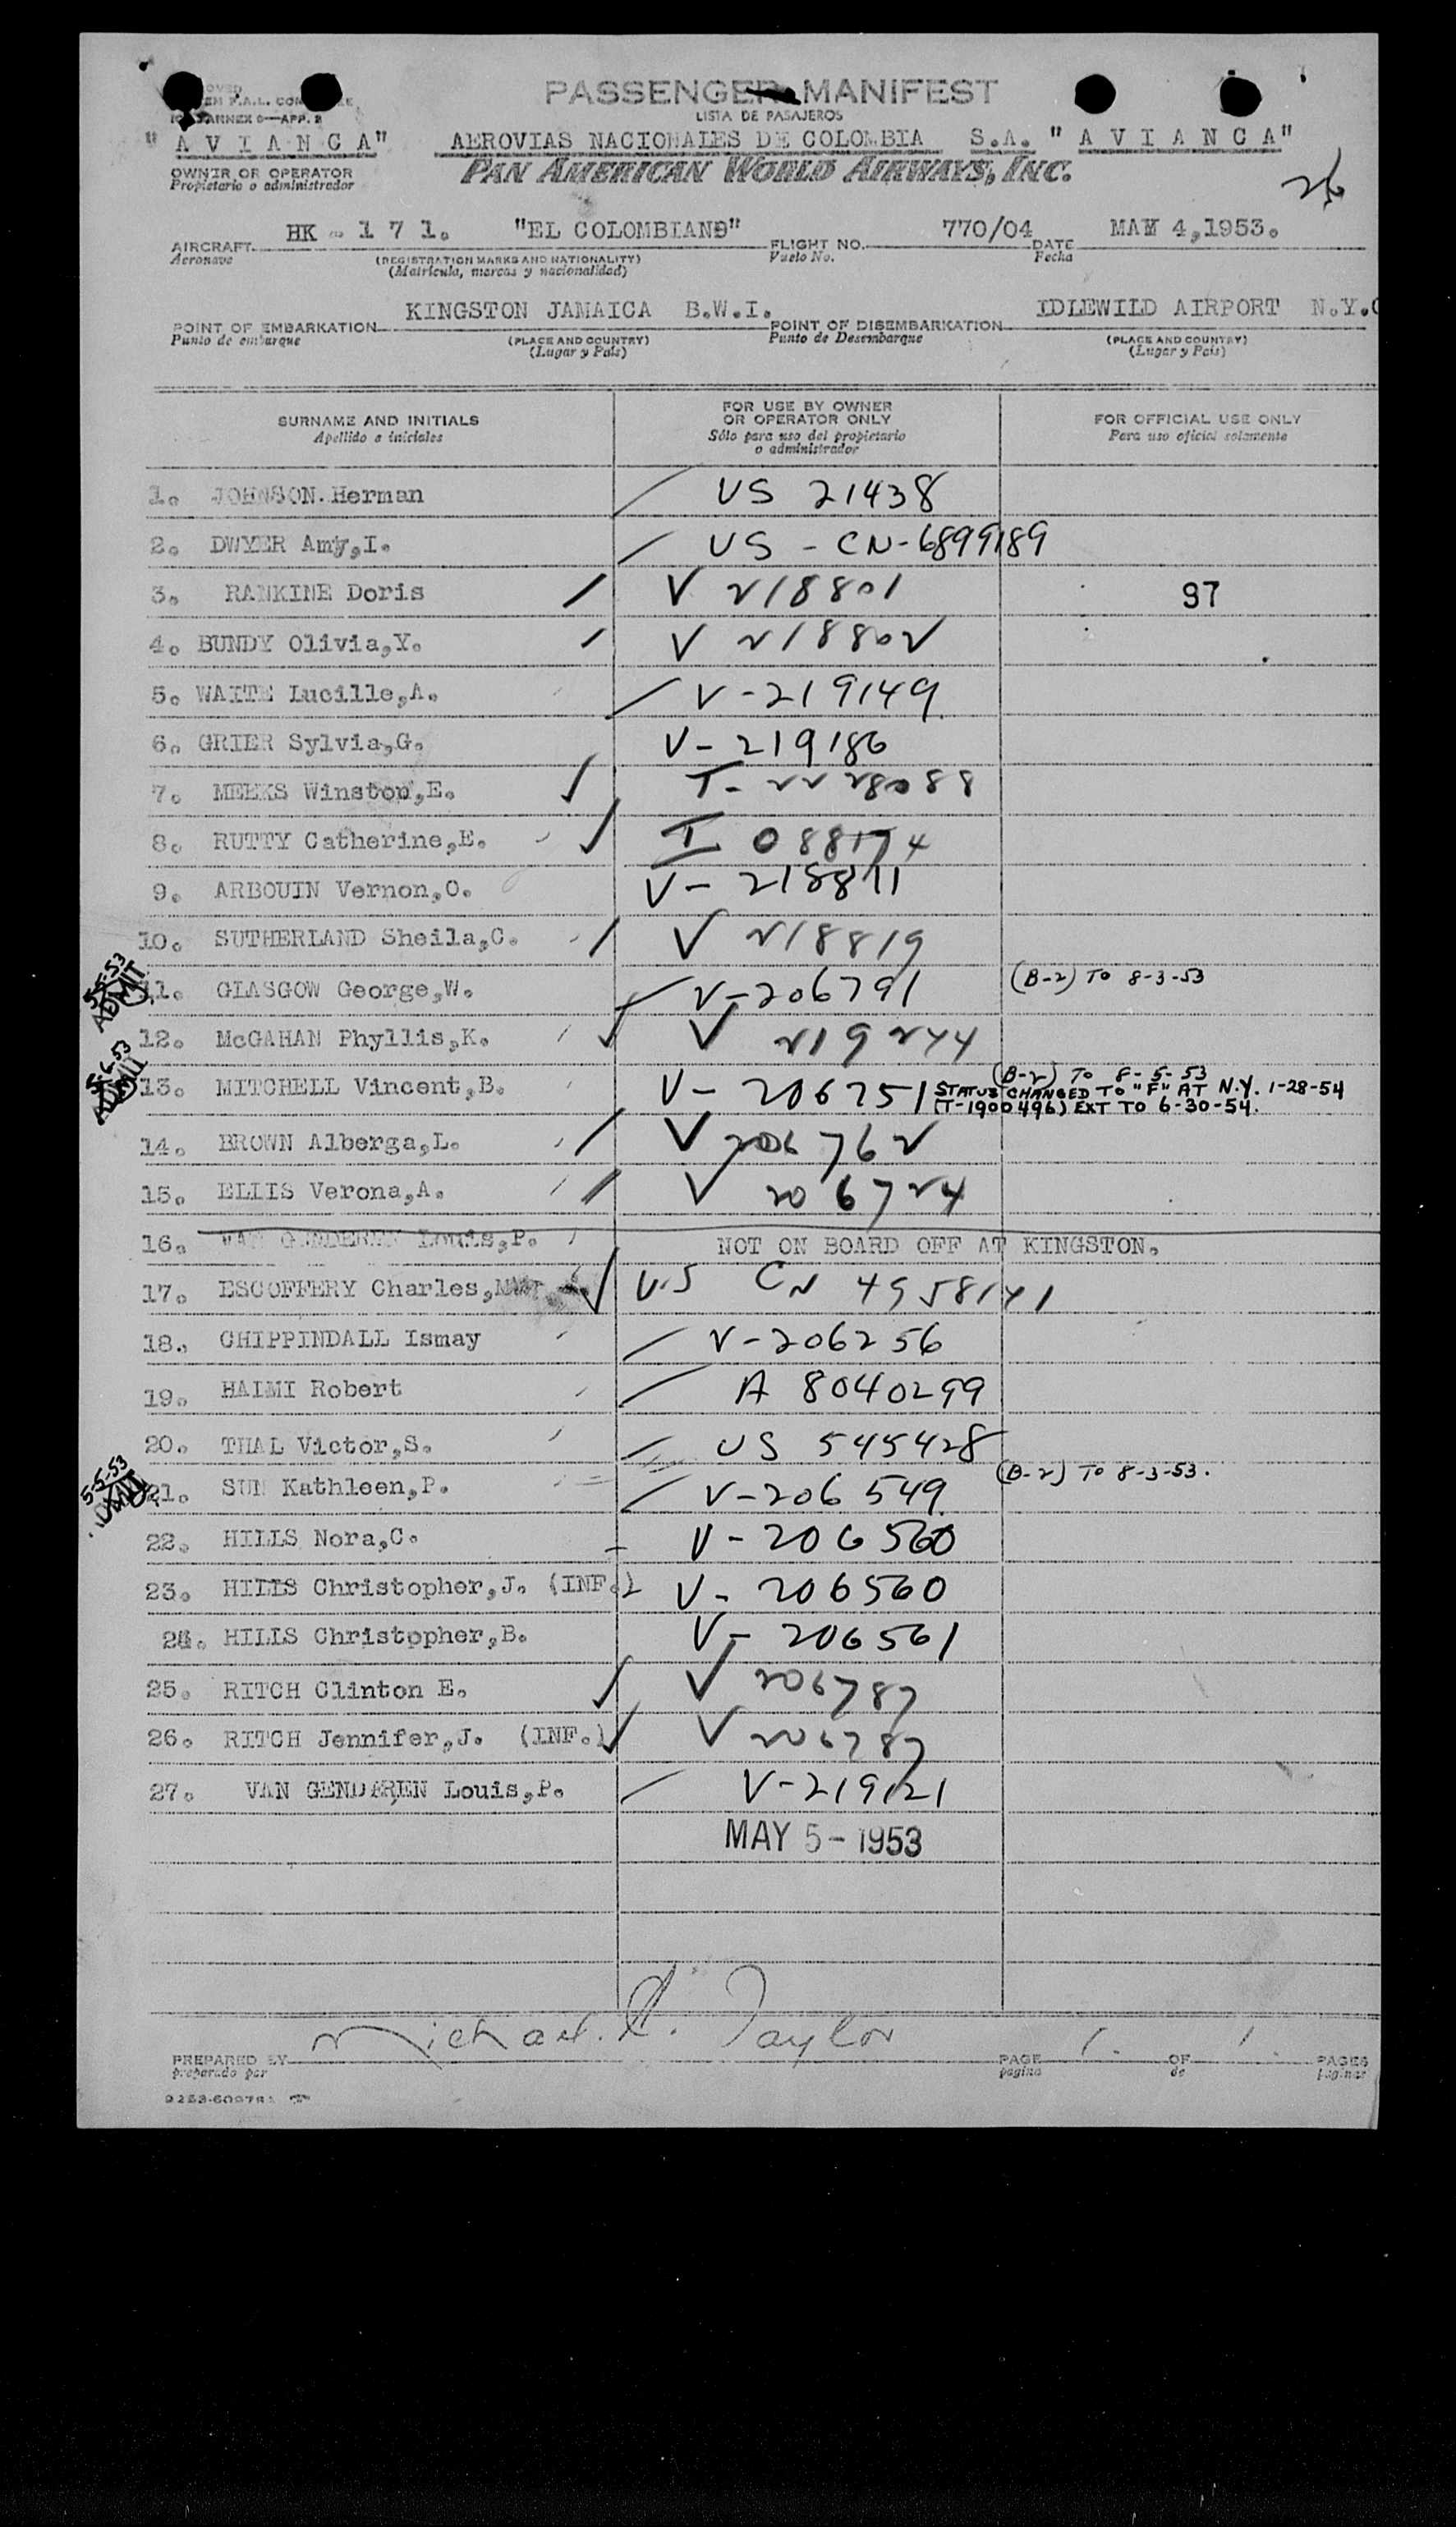 PASSENGER MANIFEST
LISTA DE PASAJEROS
ANNEX 9—APP. 2
" A V I A N C A" AEROVIAS NACIONALES DE COLOMBIA S.A. " A V I A N C A"
PAN AMERICAN WORLD AIRWAYS, INC.
OWNER OR OPERATOR
Propietario o administrador
26
AIRCRAFT HK - 1 7 1. "EL COLOMBIANO" FLIGHT NO. 770/04 DATE MAY 4,1953.
Aeronave (REGISTRATION MARKS AND NATIONALITY) Vuelo No. Fecha
(Matricula, marcas y nacionalidad)
POINT OF EMBARKATION KINGSTON JAMAICA B.W.I. POINT OF DISEMBARKATION IDLEWILD AIRPORT N.Y.C
Punto de embarque (PLACE AND COUNTRY) Punto de Desembarque (PLACE AND COUNTRY)
(Lugar y País) (Lugar y País)
SURNAME AND INITIALS FOR USE BY OWNER OR OPERATOR ONLY FOR OFFICIAL USE ONLY
Apellido e iniciales Sólo para uso del propietario o administrador Para uso oficial solamente
1. JOHNSON.Herman US 21438
2. DWYER Amy,I. US - CN-6899189
3. RANKINE Doris V 218801 97
4. BUNDY Olivia,Y. V 218802
5. WAITE Lucille,A. V-219149
6. GRIER Sylvia,G. V-219186
7. MEEKS Winston,E. T-2228088
8. RUTTY Catherine,E. I 088174
9. ARBOUIN Vernon,O. V-218811
10. SUTHERLAND Sheila,C. V 218819
5-5-53 ADMIT 11. GLASGOW George,W. V-206791 (B-2) TO 8-3-53
12. McGAHAN Phyllis,K. V 219244
ADMIT 13. MITCHELL Vincent,B. V-206751 (B-2) TO 8-5-53
STATUS CHANGED TO "F" AT N.Y. 1-28-54
(T-1900496) EXT TO 6-30-54.
14. BROWN Alberga,L. V 206762
15. ELLIS Verona,A. V 206724
16. VAN GENDEREN Louis,P. NOT ON BOARD OFF AT KINGSTON.
17. ESCOFFERY Charles, U.S CN 4958141
18. CHIPPINDALL Ismay V-206256
19. HAIMI Robert A 8040299
20. THAL Victor,S. US 545428
5-5-53 ADMIT 21. SUN Kathleen,P. V-206549 (B-2) TO 8-3-53.
22. HILLS Nora,C. V-206560
23. HILLS Christopher,J. (INF.) V-206560
24. HILLS Christopher,B. V-206561
25. RITCH Clinton E. V 206787
26. RITCH Jennifer,J. (INF.) V 206787
27. VAN GENDEREN Louis,P. V-219121
MAY 5-1953
PREPARED BY Michael. Taylor PAGE 1. OF 1. PAGES
preparado por pagina de páginas